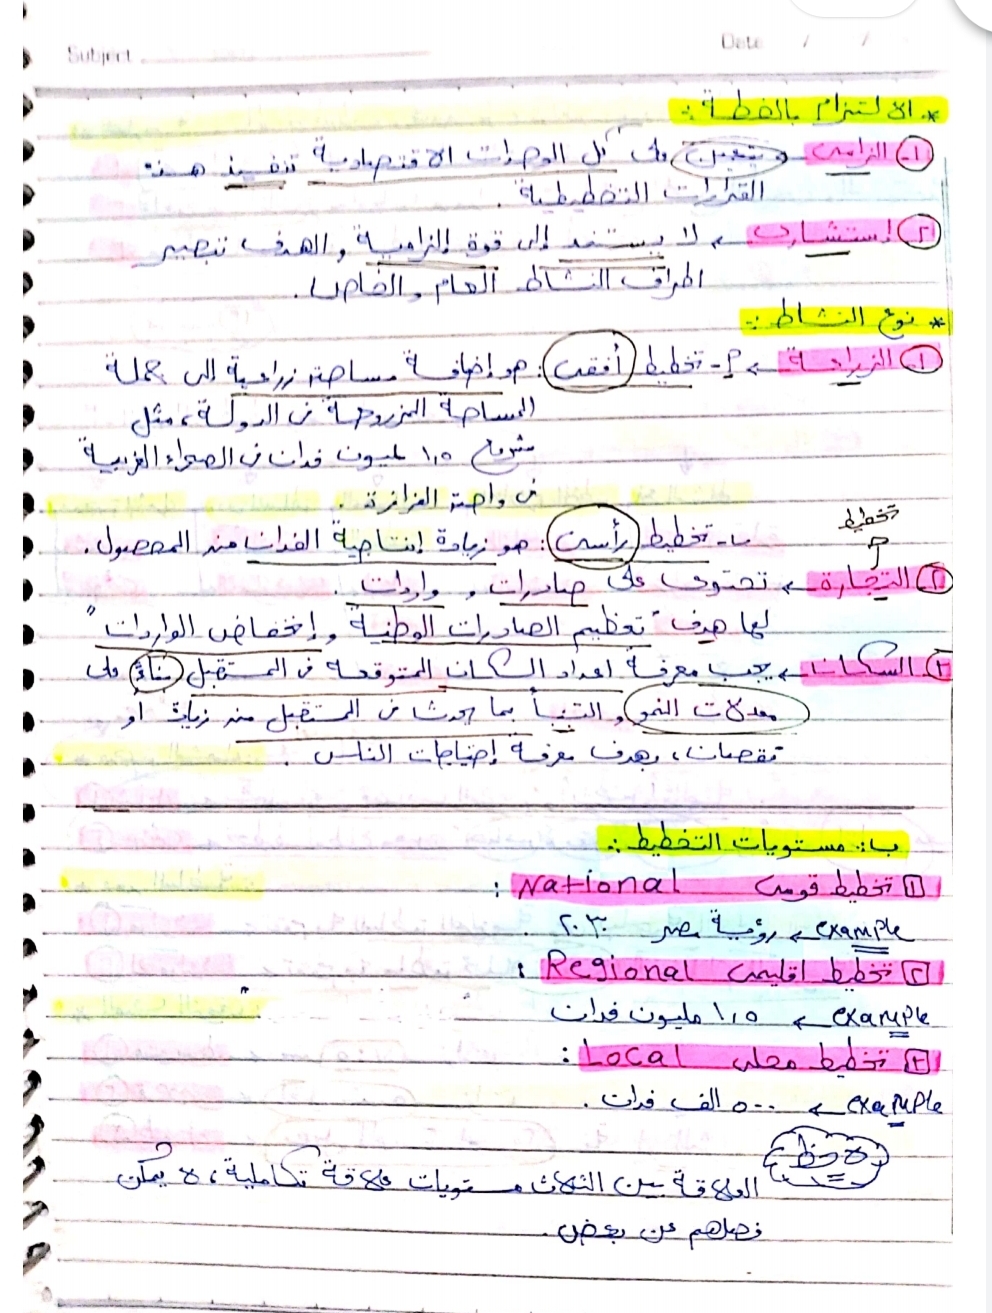 Subject
Date / /
* الالتزام بالخطة :-
١- إلزامى ← يتعين على كل الوحدات الاقتصادية تنفيذ هذه
القرارات التخطيطية .
٢ إستشارى ← لا يستند إلى قوة إلزامية ، والهدف تبصير
اطراف النشاط العام والخاص .
* نوع النشاط :-
١ الزراعة ← أ- تخطيط أفقى : هو إضافة مساحة زراعية إلى جملة
المساحة المزروعة فى الدولة ، مثل
مشروع ١,٥ مليون فدان فى الصحراء الغربية
فى واحة الفرافرة .
ب- تخطيط رأسى : هو زيادة إنتاجية الفدان من المحصول .
تخطيط
٢ التجارة ← تحتوى على صادرات و واردات .
لها هدف " تعظيم الصادرات الوطنية و إنخفاض الواردات "
٣ السكان ← يجب معرفة اعداد السكان المتوقعة فى المستقبل بناءً على
معدلات النمو و التنبأ بما يحدث فى المستقبل من زيادة أو
نقصان ، بهدف معرفة إحتياجات الناس .
ب : مستويات التخطيط :-
١ تخطيط قومى National :
example ← رؤية مصر ٢٠٣٠ .
٢ تخطيط اقليمى Regional :
example ← ١,٥ مليون فدان
٣ تخطيط محلى Local :
example ← ٥٠٠ الف فدان .
لاحظ
العلاقة بين الثلاث مستويات علاقة تكاملية ، لا يمكن
فصلهم عن بعض .